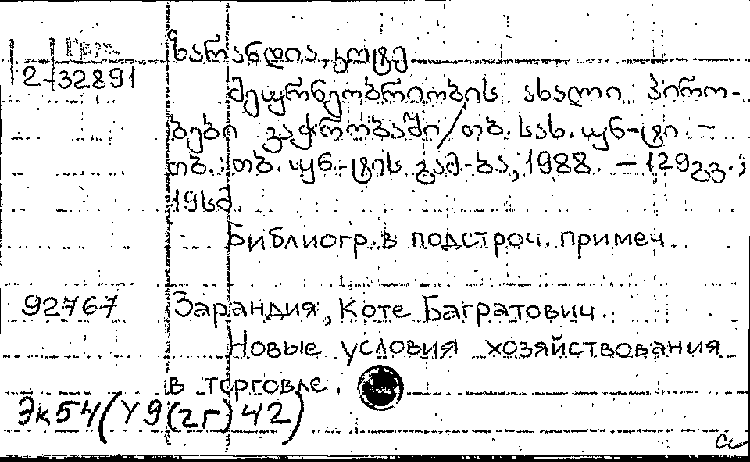 ზარანდია, კოტე
2-32891
მეურნეობრიობის ახალი პირო-
ბები ვაჭრობაში/თბ. სახ. უნ-ტი. –
თბ.: თბ. უნ-ტის გამ-ბა, 1988. – 129 გვ.;
19 სმ.
Библиогр. в подстроч. примеч.
92767 Зарандия, Коте Багратович.
Новые условия хозяйствования
в торговле.
Эк54(У9(2Г)42)